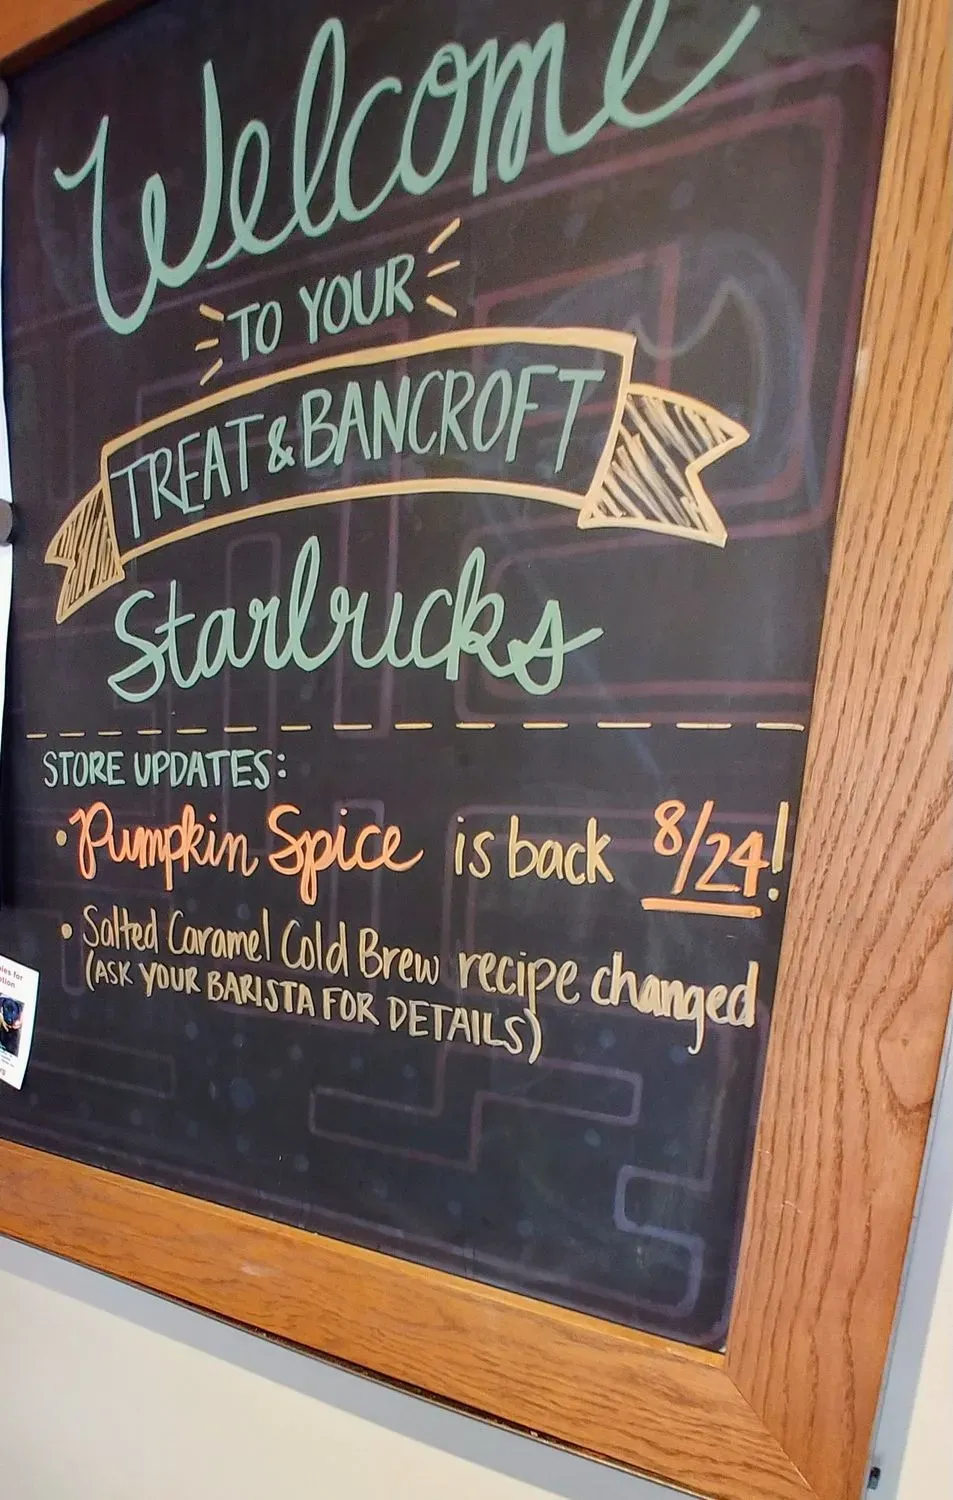 Welcome
TO YOUR
TREAT & BANCROFT
Starbucks
STORE UPDATES:
• Pumpkin Spice is back 8/24!
• Salted Caramel Cold Brew recipe changed
(ASK YOUR BARISTA FOR DETAILS)